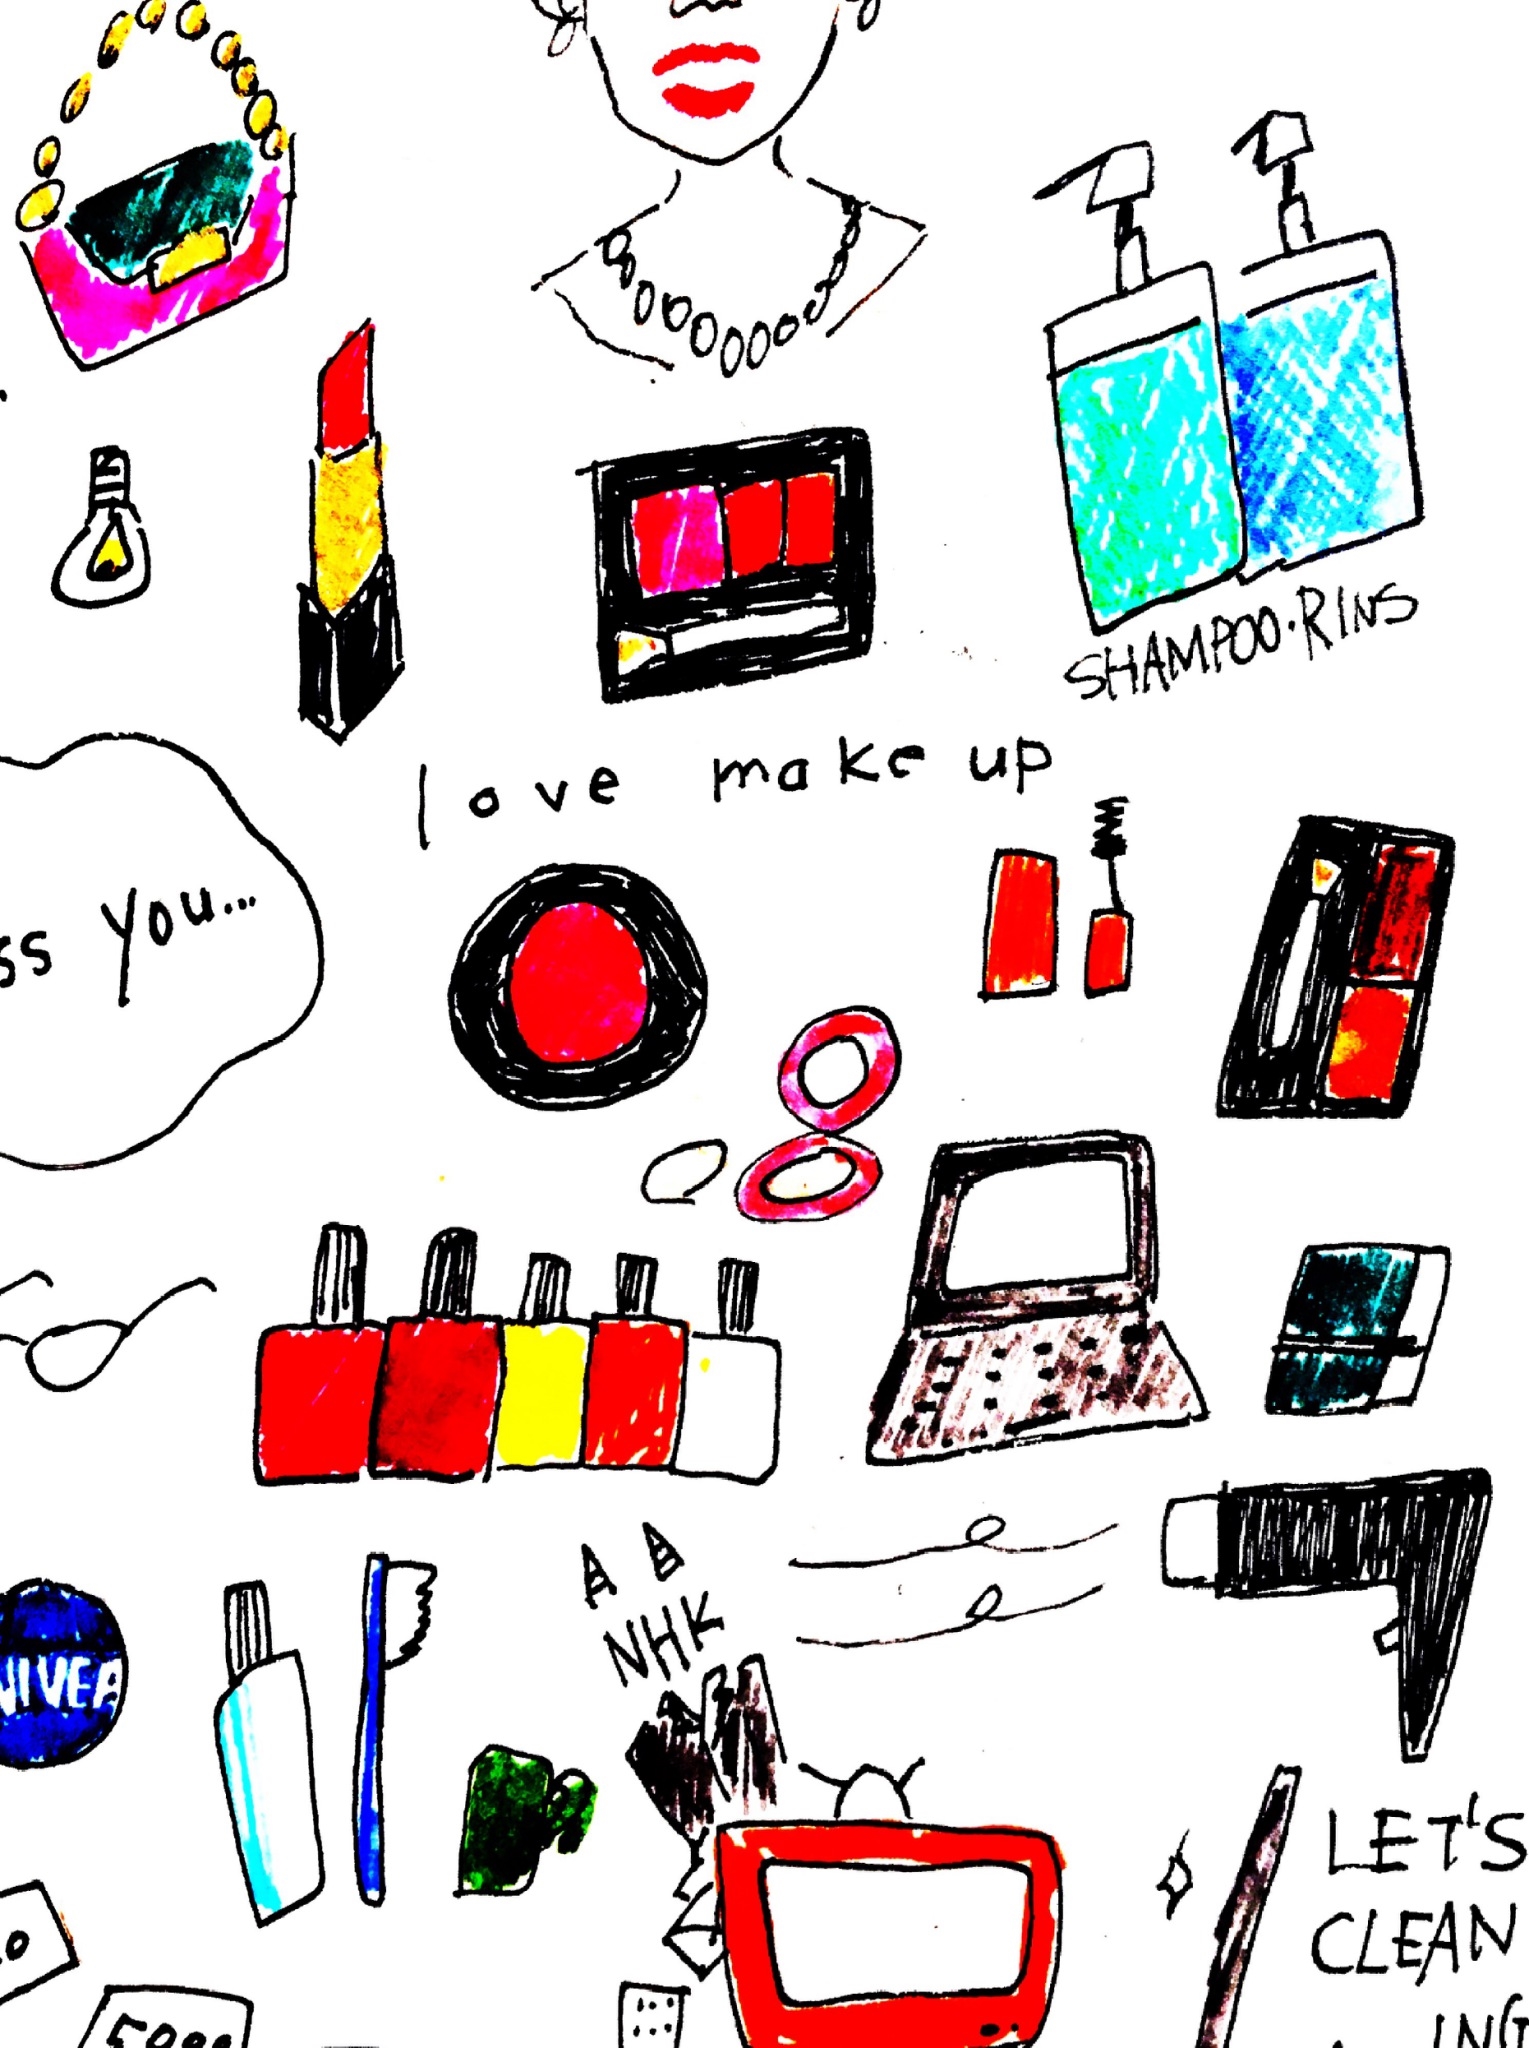 SHAMPOO・RINS
love make up
ss you...
NHK
NIVEA
LET'S
CLEAN
ING